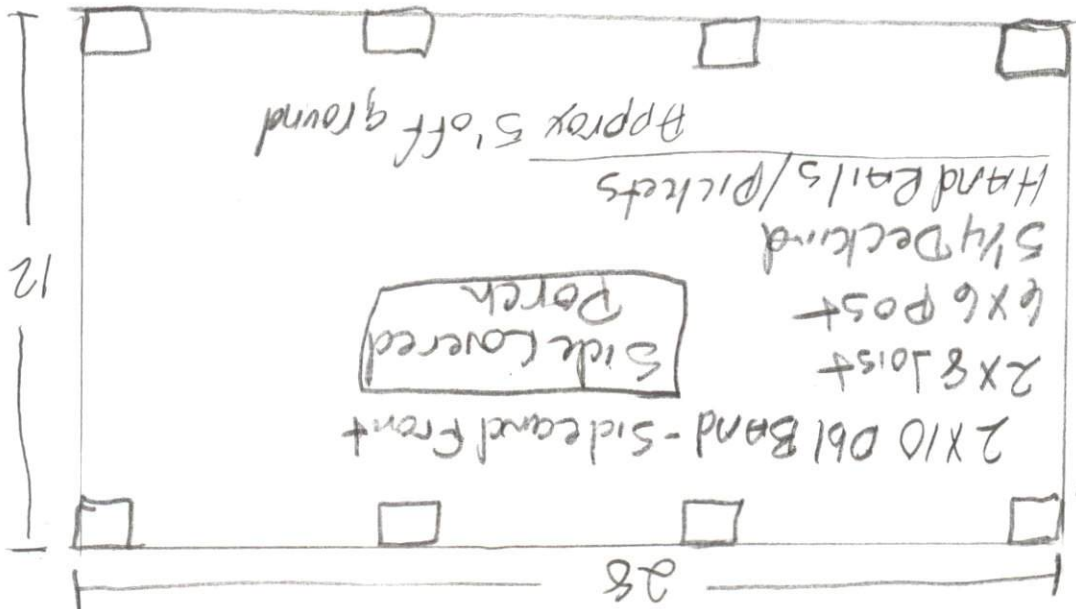 28
2X10 Dbl BAnd - Side and Front
2X8 Joist
6X6 Post
5/4 Decking
HAnd RAils/Pickets
Approx 5' off ground
Side Covered
Porch
12